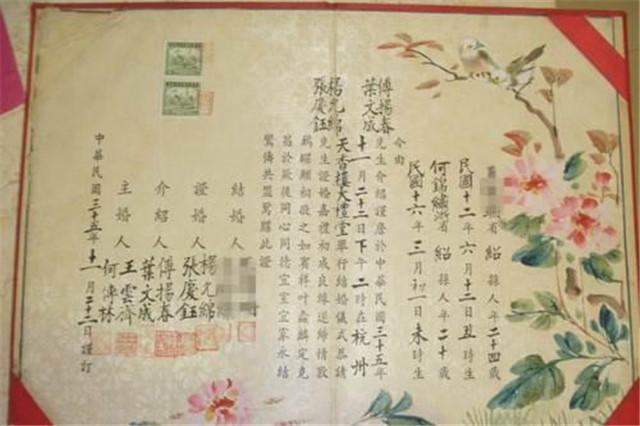 浙省紹縣人年二十四歲
民國十二年六月十三日丑時生
何錦繡浙省紹縣人年二十歲
民國十六年三月初一日未時生
今由
傅揚春
葉文成
先生介紹謹詹於中華民國三十五年
十一月二十三日下午二時在杭州
天香樓大禮堂舉行結婚儀式恭請
楊光綿
張慶鈺
先生證婚嘉禮初成良緣遂締情敦
鶼鰈願相敬之如賓祥叶螽麟定克
昌於厥後同心同德宜室宜家永結
鸞儔共盟鴛牒此證
結婚人
證婚人
楊光綿
張慶鈺
介紹人
傅揚春
葉文成
主婚人
王雲齊
何傳林
中華民國三十五年十一月二十三日謹訂